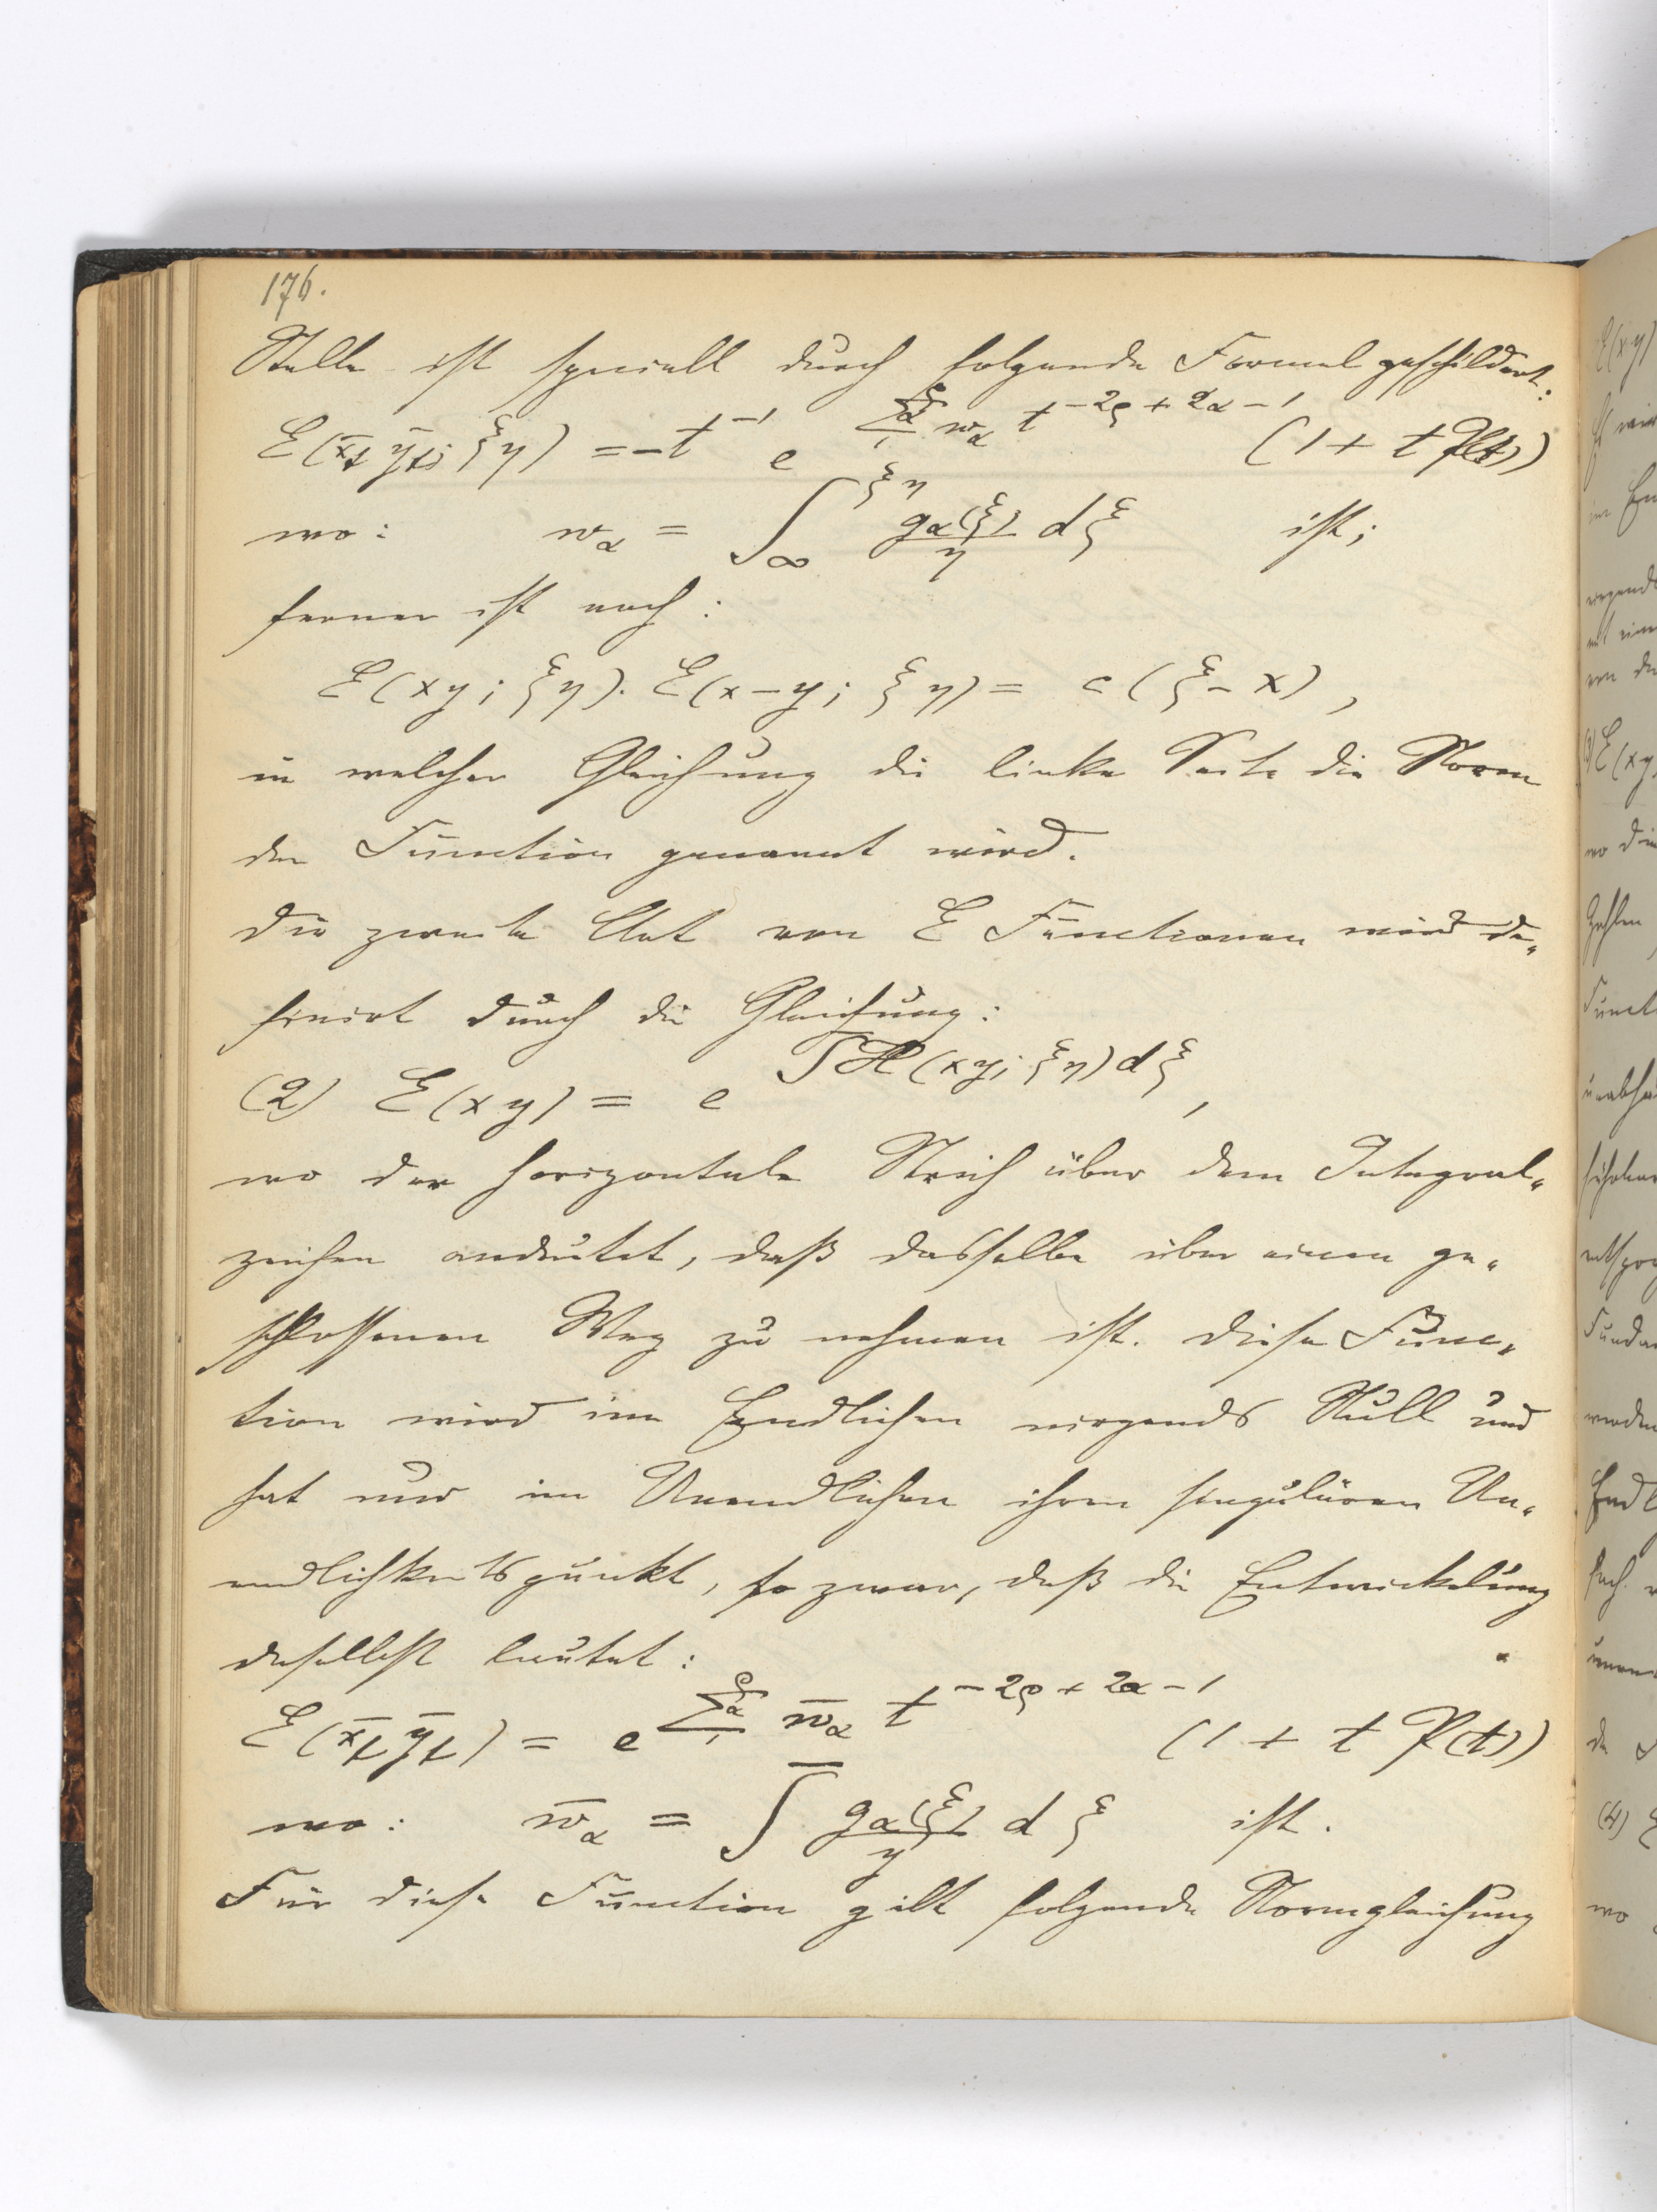 176.
Stelle ist speciell durch folgende Formel geschildert:
E(x̄t ȳt; ξη) = -t⁻¹ e^{Σ₁^ρ_α w_α t^{-2ρ+2α-1}} (1 + t P(t))
wo: w_α = ∫_∞^{ξη} g_α(ξ)/η dξ ist;
ferner ist noch:
E(xy; ξη). E(x-y; ξη) = c(ξ-x),
in welcher Gleichung die linke Seite die Norm
der Function genannt wird.
Die zweite Art von E Functionen wird de-
finirt durch die Gleichung:
(2) E(xy) = e^{∫̄H(xy; ξη)dξ},
wo der horizontale Strich über dem Integral-
zeichen andeutet, daß dasselbe über einen ge-
schlossenen Weg zu nehmen ist. Diese Func-
tion wird im Endlichen nirgends Null und
hat nur im Unendlichen ihren singulären Un-
endlichkeitspunkt, so zwar, daß die Entwickelung
daselbst lautet:
E(x̄t ȳt) = e^{Σ₁^ρ_α w̄_α t^{-2ρ+2α-1}} (1 + t P(t))
wo: w̄_α = ∫̄ g_α(ξ)/y d ξ ist.
Für diese Function gilt folgende Normgleichung